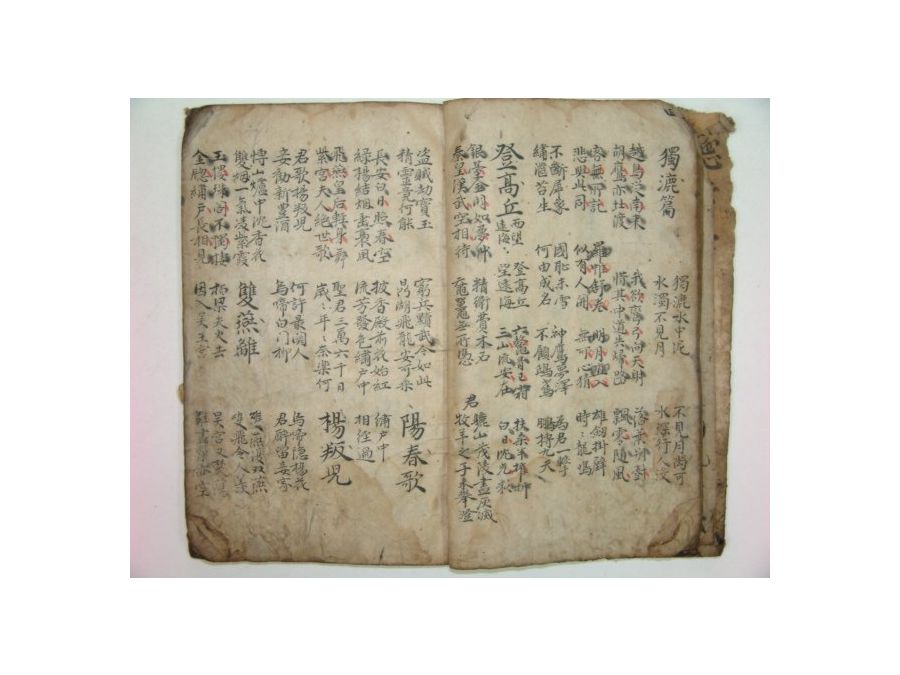 獨漉篇
獨漉水中泥
水濁不見月
不見月尚可
水深行人沒
越鳥從南來
胡鷹亦北渡
我欲彎弓向天射
惜其中道失歸路
落葉別樹
飄零隨風
客無所託
悲與此同
羅帷舒卷
似有人開
明月直入
無心可猜
雄劍掛壁
時〻龍鳴
不斷犀象
繡澀苔生
國恥未雪
何由成名
神鷹夢澤
不顧鴟鳶
為君一擊
鵬摶九天
登高丘而望遠海
登高丘
望遠海
六鰲骨已霜
三山流安在
扶桑半摧折
白日沈光彩
銀臺金闕如夢中
秦皇漢武空相待
精衛費木石
黿鼉無所憑
君
驪山茂陵盡灰滅
牧羊之子來攀登
盜賊劫寶玉
精靈竟何能
窮兵黷武今如此
鼎湖飛龍安可乘
陽春歌
長安白日照春空
綠楊結烟垂裊風
披香殿前花始紅
流芳發色繡戶中
繡戶中
相經過
飛燕皇后輕身舞
紫宮夫人絕世歌
聖君三萬六千日
歲〻年〻奈樂何
楊叛兒
君歌楊叛兒
妾勸新豐酒
何許最關人
烏啼白門柳
烏啼隱楊花
君醉留妾家
博山爐中沈香火
雙烟一氣凌紫霞
雙燕離
雙燕復雙燕
雙飛令人羨
玉樓珠閣不獨棲
金窓繡戶長相見
柏梁失火去
因入吳王宮
吳宮又焚蕩
雛盡巢亦空